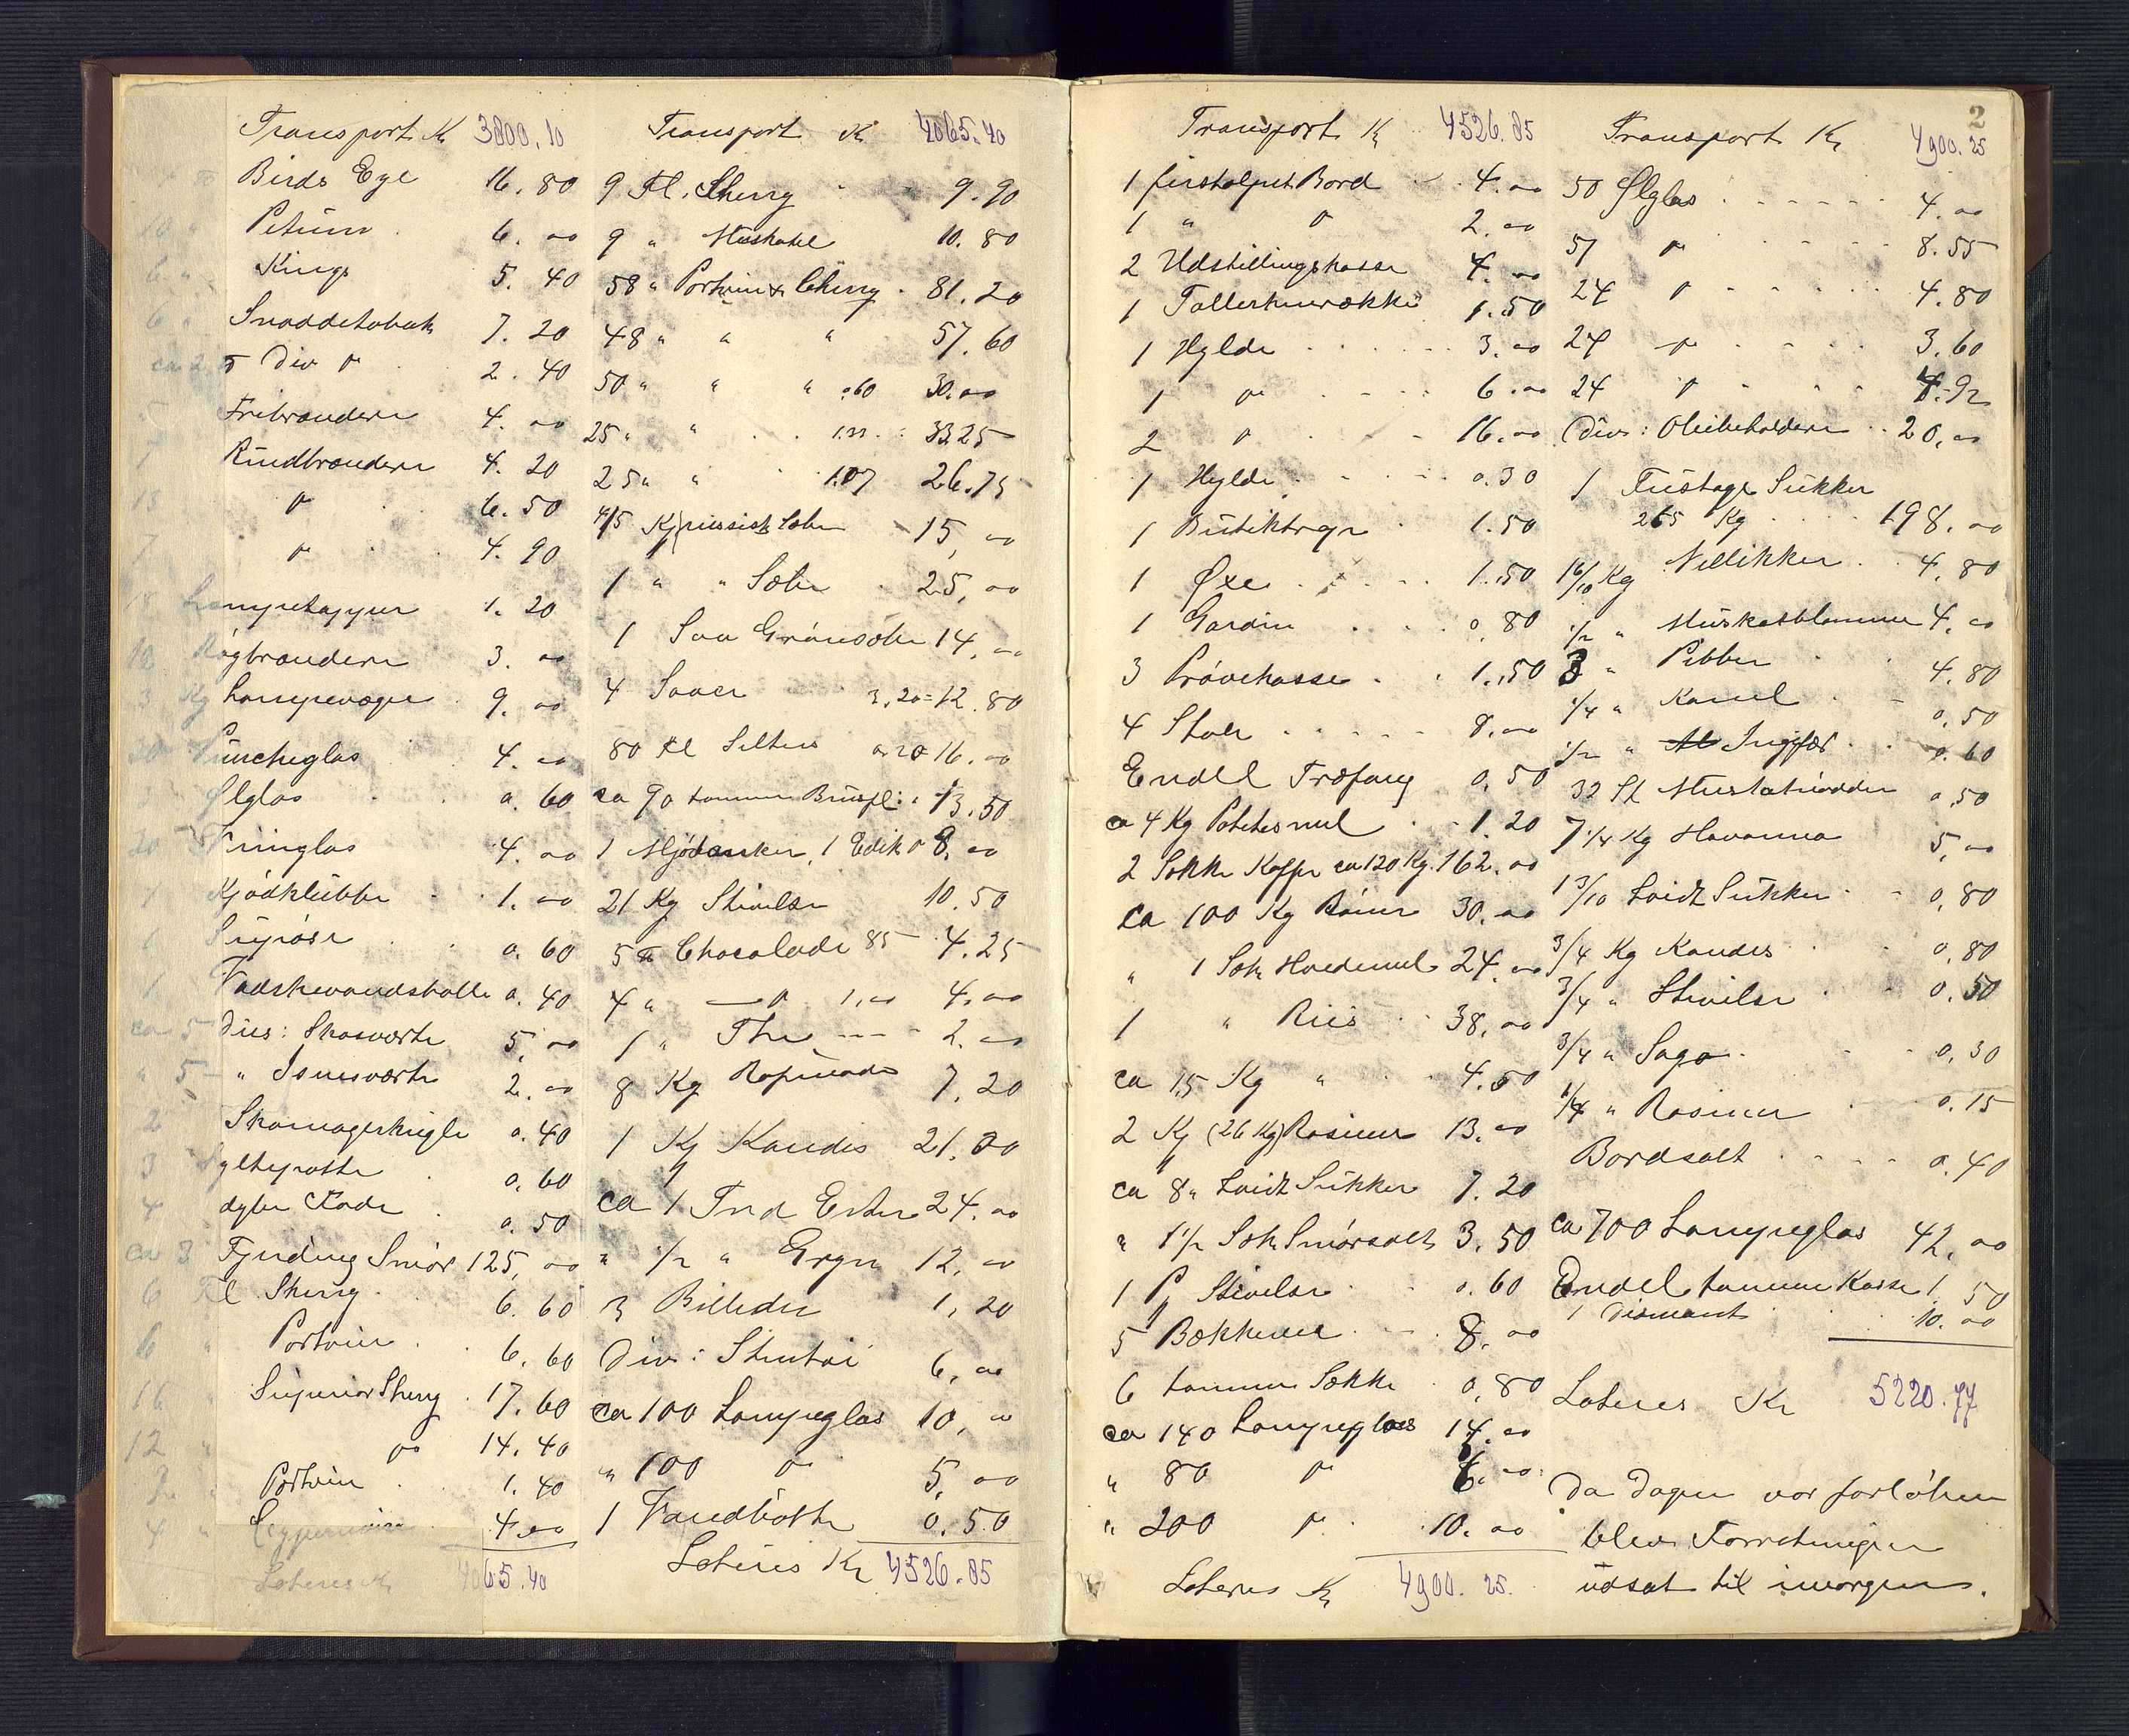 Transport Kr 3800.10
Birds Eye 16.80
10 " Petum 6.00
6 " Kings 5.40
6 " Snaddetobak 7.20
ca 2 ℔ Div do 2.40
Fribrændere 4.00
7 Rundbrændere 4.20
18 do 6.50
7 do 4.90
18 Lampetapper 1.20
10 Røgbrændere 3.00
3 Kg Lampevæger 9.00
20 Puncheglas 4.00
Ølglas 0.60
20 Vinglas 4.00
1 Kjødklubbe 1.00
1 0.60
1 Vadskevandsballe 0.40
ca 5 Dus: Skosværte 5.00
" 5 " Isensværte 2.00
2 Skomagerkugle 0.40
3 Syltepotte 0.60
4 dybe Fade 0.50
ca 3 Tynding Smør 125.00
6 Fl Sherry 6.60
6 " Portvin 6.60
16 " Superior Sherry 17.60
12 " do 14.40
2 " Portvin 1.40
4 " 4.00
Lateres Kr 4065.40
Transport Kr 4065.40
9 Fl. Sherry 9.90
9 " Muskatel 10.80
58 " Portvin & Cherry 81.20
48 " " " 57.60
50 " " " 0.60 30.00
25 " " 1.33 33.25
25 " " 1.07 26.75
4/5 Kj russisk Sæbe 15.00
1 " " Sæbe 25.00
1 Saa Grønsæbe 14.00
4 Saaer 3.20 = 12.80
80 Fl Selters 0.20 16.00
ca 90 tomme Brusfl: 13.50
1 Mjødanker, 1 Edik do 8.00
21 Kg Stivelse 10.50
5 ℔ Chocolade 85 4.25
4 " do 1.00 4.00
1 " The 2.00
8 Kg Rafinade 7.20
1 Kj Kandis 21.00
ca 1 Tnd Erter 24.00
" 1/2 " Gryn 12.00
3 Billeder 1.20
Div: Stentøi 6.00
ca 100 Lampeglas 10.00
" 100 do 5.00
1 Vandbøtte 0.50
Lateres Kr 4526.85
2
Transport Kr 4526.85
1 firstolpet Bord 4.00
1 " do 2.00
2 Udstillingskasse 4.00
1 Tallerkenrække 1.50
1 Hylde 3.00
1 do 6.00
2 do 16.00
1 Hylde 0.30
1 Butiktrype 1.50
1 Øxe 1.50
1 Gardin 0.80
3 Prøvekasse 1.50
4 Stole 8.00
Endel Træfang 0.50
ca 4 Kg Potetesmel 1.20
2 Sække Kaffe ca 120 Kg. 162.00
ca 100 Kg Bønner 30.00
" 1 Sæk Hvedemel 24.00
1 " Riis 38.00
ca 15 Kg " 4.50
2 Kj (26 Kg) Rosiner 13.00
ca 8 " hvidt Sukker 7.20
" 1 1/2 Sæk Smørsalt 3.50
1 P. Stivelse 0.60
5 Bækkener 8.00
6 tomme Sække 0.80
ca 140 Lampeglas 14.00
" 80 do 6.00
" 200 do 10.00
Lateres Kr 4900.25
Transport Kr 4900.25
50 Ølglas 4.00
57 do 8.55
24 do 4.80
24 do 3.60
24 do 4.92
Div: Oliebeholdere 20.00
1 Fustage Sukker
265 Kg 198.00
16/10 Kg Nellikker 4.80
1/2 " Muskatblomme 4.00
3 " Pebber 4.80
1/4 " Kanel 0.50
1/2 " Ingefær 0.60
32 St Muskatnødder 0.50
7 1/4 Kg Havanna 5.00
1 3/10 hvidt Sukker 0.80
3/4 Kg Kandis 0.80
3/4 " Stivelse 0.50
3/4 " Sago 0.30
1/4 " Rosiner 0.15
Bordsalt 0.40
ca 700 Lampeglas 42.00
Endel tomme Kasse 1.50
1 Diamant 10.00
Lateres Kr 5220.77
Da Dagen var forløben
blev Forretningen
udsat til imorgen.